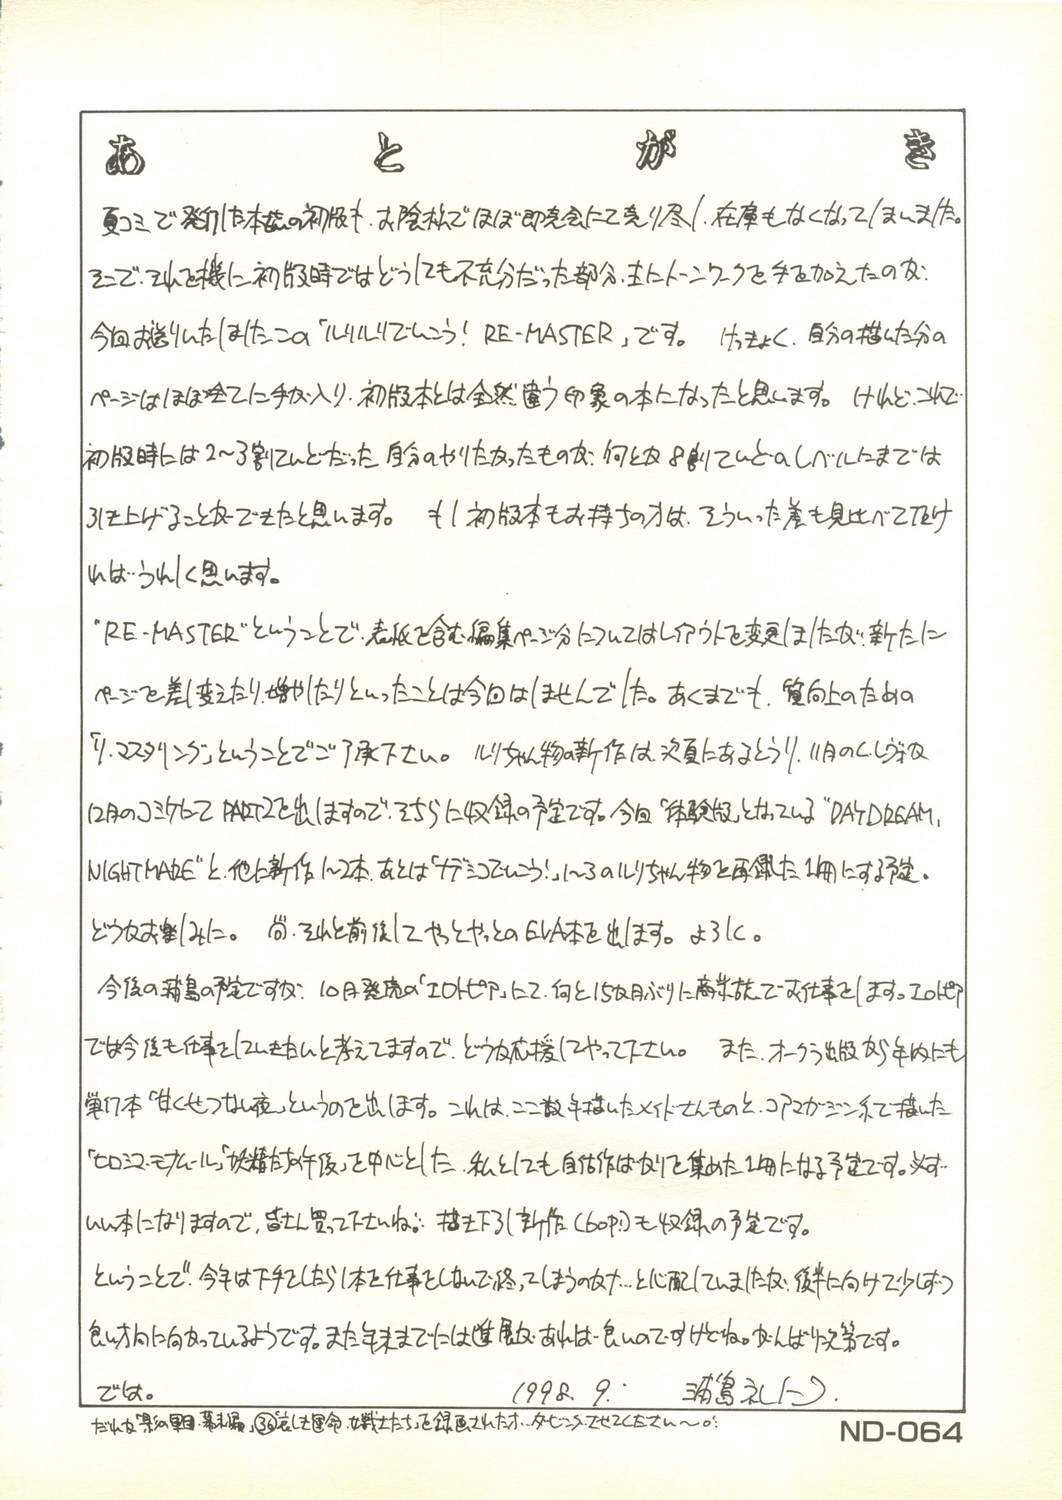 あとがき
夏コミで発行した本誌の初版も、お陰様でほぼ即売会にて売り尽し、在庫もなくなってしまいました。
そこで、それを機に、初版時ではどうしても不充分だった部分、主にトーンワークを手を加えたのが、
今回お送りいたしましたこの「ルリルリでいこう! RE-MASTER」です。 けっきょく、自分の描いた分の
ページはほぼ全てに手が入り、初版本とは全然違う印象の本になったと思います。 けれど、これで
初版時には2〜3割ていどだった自分のやりたかったものが、何とか8割ていどのレベルにまでは
引き上げることができたと思います。 もし初版本もお持ちの方は、そういった差も見比べて頂け
ればうれしく思います。
"RE-MASTER"ということで、表紙を含む編集ページ分についてはレイアウトを変更しましたが、新たに
ページを差し変えたり、増やしたりといったことは今回はしませんでした。あくまでも、質向上のための
「リ・マスタリング」ということでご了承下さい。 ルリちゃん物の新作は、次頁にあるとうり、11月のC.レヴォか
12月のコミケにてPART2を出しますので、そちらに収録の予定です。今回「体験版」となっている"DAYDREAM,
NIGHTMARE"と、他に新作1〜2本、あとは「ナデシコでいこう!」1〜3のルリちゃん物を再録した1冊にする予定。
どうかお楽しみに。 尚、それと前後してやっとやっとのEVA本を出します。よろしく。
今後の浦島の予定ですが、10月発売の「エロトピア」にて、何と15ヵ月ぶりに商業誌でお仕事をします。エロトピア
では今後も仕事をしていきたいと考えてますので、どうか応援してやって下さい。 また、オークラ出版から年内にも
単行本「甘くせつない夜」というのを出します。これは、ここ数年描いたメイドさんものと、コアマガジン系で描いた
「ヒロシマ・モナムール」「妖精たちの午後」を中心とした、私としても自信作ばかりを集めた1冊になる予定です。必ず
いい本になりますので、皆さん買って下さいね。描き下ろし新作(60P!)も収録の予定です。
ということで、今年は下手をしたら1本も仕事をしないで終ってしまうのかな…と心配していましたが、後半に向けて少しずつ
良い方向に向かっているようです。また年末までには進展があれば良いのですけどね。がんばり次第です。
では。 1998. 9. 浦島礼仁
だれか「影の軍団・幕末編」 哀しき運命、女戦士たち」を録画された方、ダビングさせてください〜。
ND-064